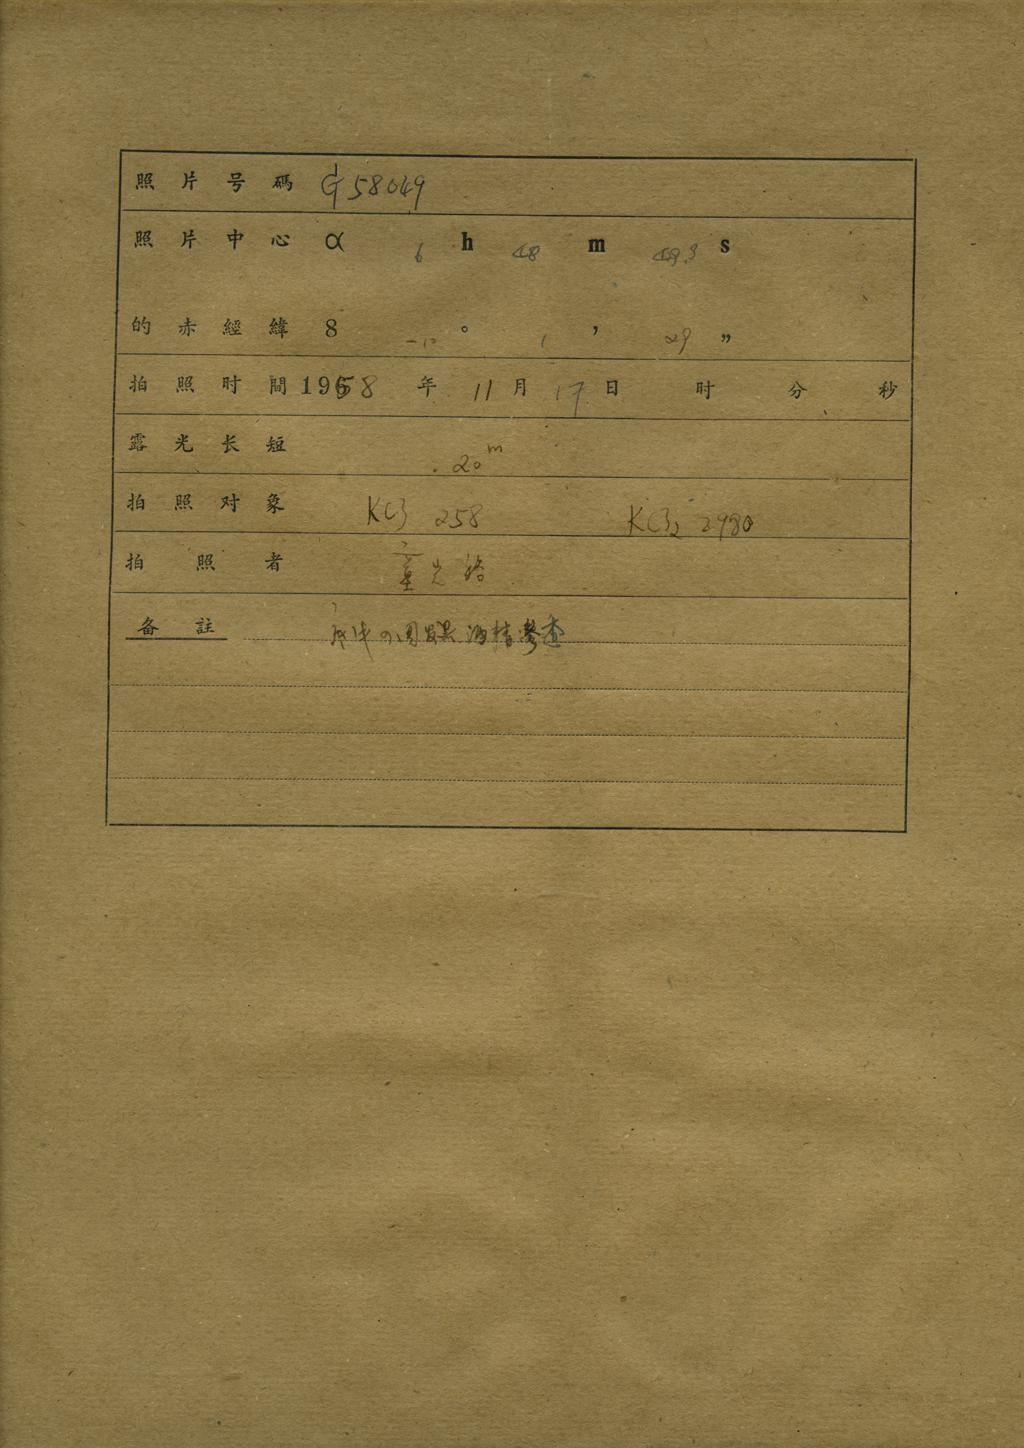 照片号碼 G 58049
照片中心 α 6 h 48 m 49.3 s
的赤經緯 δ -10 ° 1 ′ 29 ″
拍照时間 1958 年 11 月 17 日 时 分 秒
露光长短 20m
拍照对象 KC3 258 KC32 2980
拍照者
备註